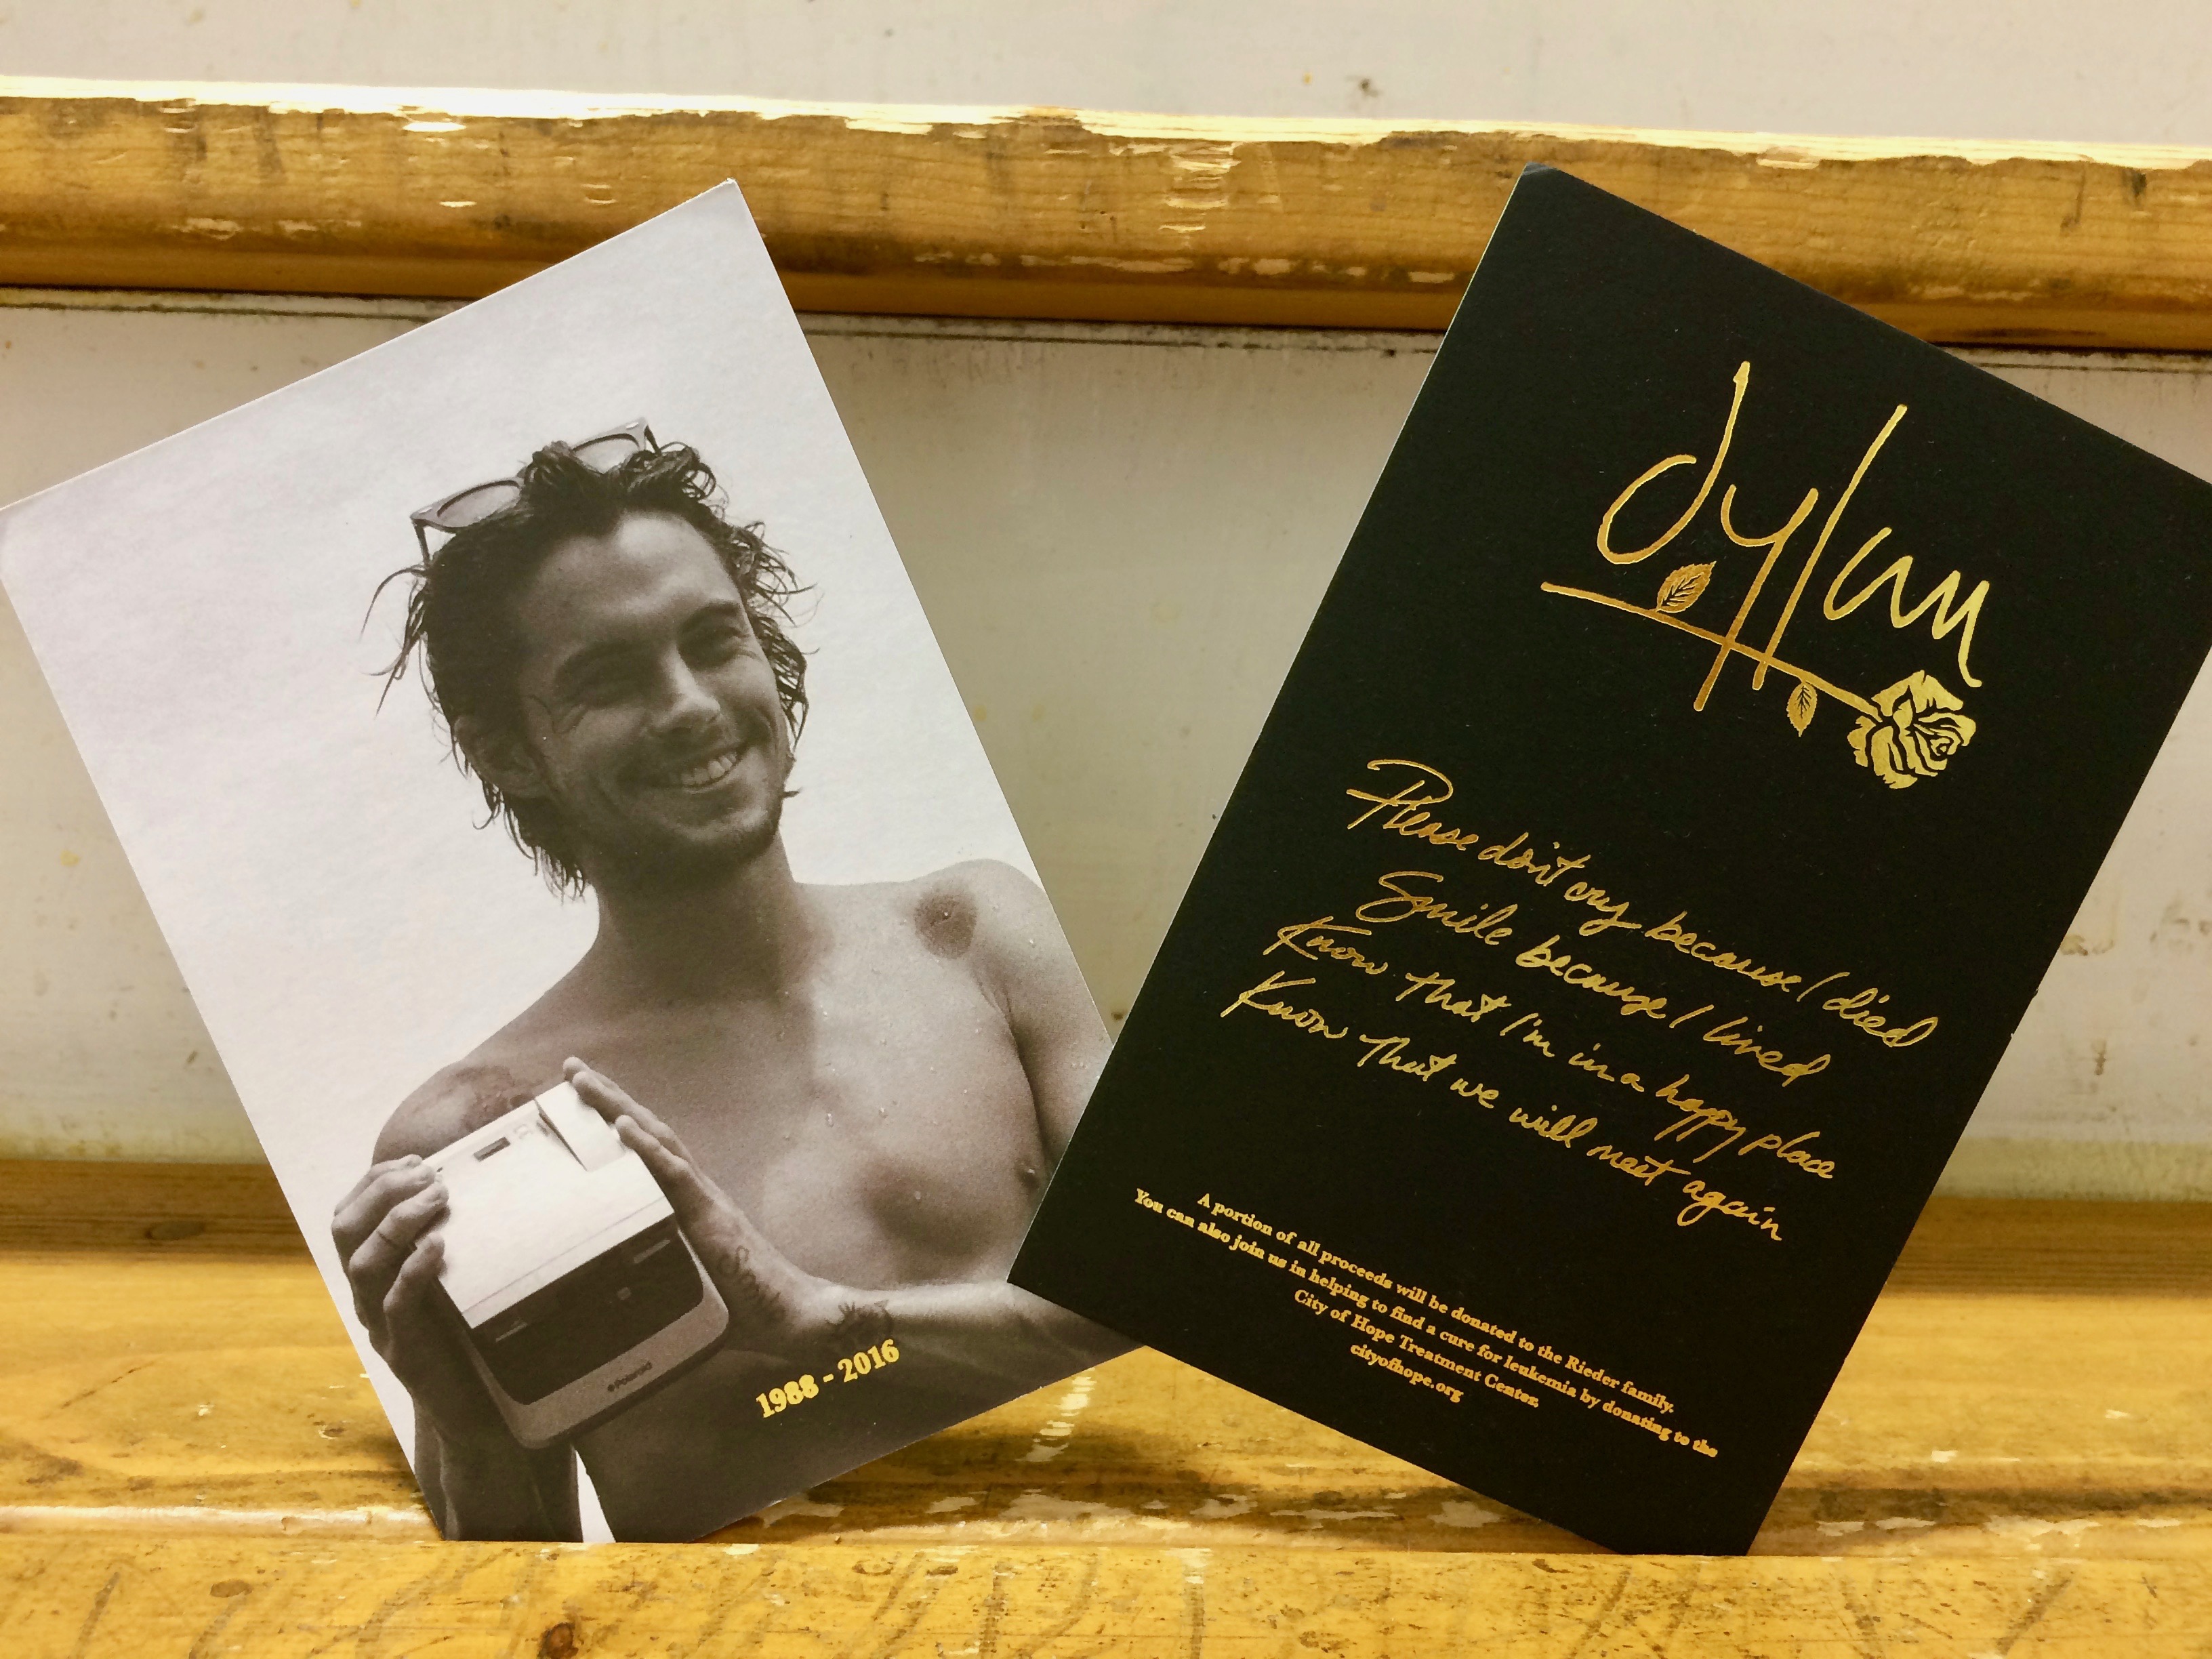 Polaroid
1988 - 2016
dylan
Please don't cry because I died
Smile because I lived
Know that I'm in a happy place
Know that we will meet again
A portion of all proceeds will be donated to the Rieder family.
You can also join us in helping to find a cure for leukemia by donating to the
City of Hope Treatment Center.
cityofhope.org